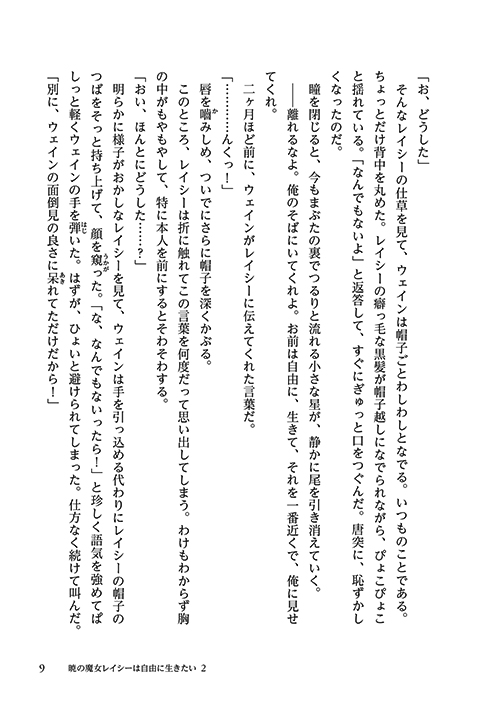 「お、どうした」
そんなレイシーの仕草を見て、ウェインは帽子ごとわしわしとなでる。いつものことである。
ちょっとだけ背中を丸めた。レイシーの癖っ毛な黒髪が帽子越しになでられながら、ぴょこぴょこ
と揺れている。「なんでもないよ」と返答して、すぐにぎゅっと口をつぐんだ。唐突に、恥ずかし
くなったのだ。
瞳を閉じると、今もまぶたの裏でつるりと流れる小さな星が、静かに尾を引き消えていく。
――離れるなよ。俺のそばにいてくれよ。お前は自由に、生きて、それを一番近くで、俺に見せ
てくれ。
二ヶ月ほど前に、ウェインがレイシーに伝えてくれた言葉だ。
「…………んくっ！」
唇を嚙かみしめ、ついでにさらに帽子を深くかぶる。
このところ、レイシーは折に触れてこの言葉を何度だって思い出してしまう。わけもわからず胸
の中がもやもやして、特に本人を前にするとそわそわする。
「おい、ほんとにどうした……？」
明らかに様子がおかしなレイシーを見て、ウェインは手を引っ込める代わりにレイシーの帽子の
つばをそっと持ち上げて、顔を窺うかがった。「な、なんでもないったら！」と珍しく語気を強めてぱ
しっと軽くウェインの手を弾はじいた。はずが、ひょいと避けられてしまった。仕方なく続けて叫んだ。
「別に、ウェインの面倒見の良さに呆あきれてただけだから！」
9 暁の魔女レイシーは自由に生きたい 2